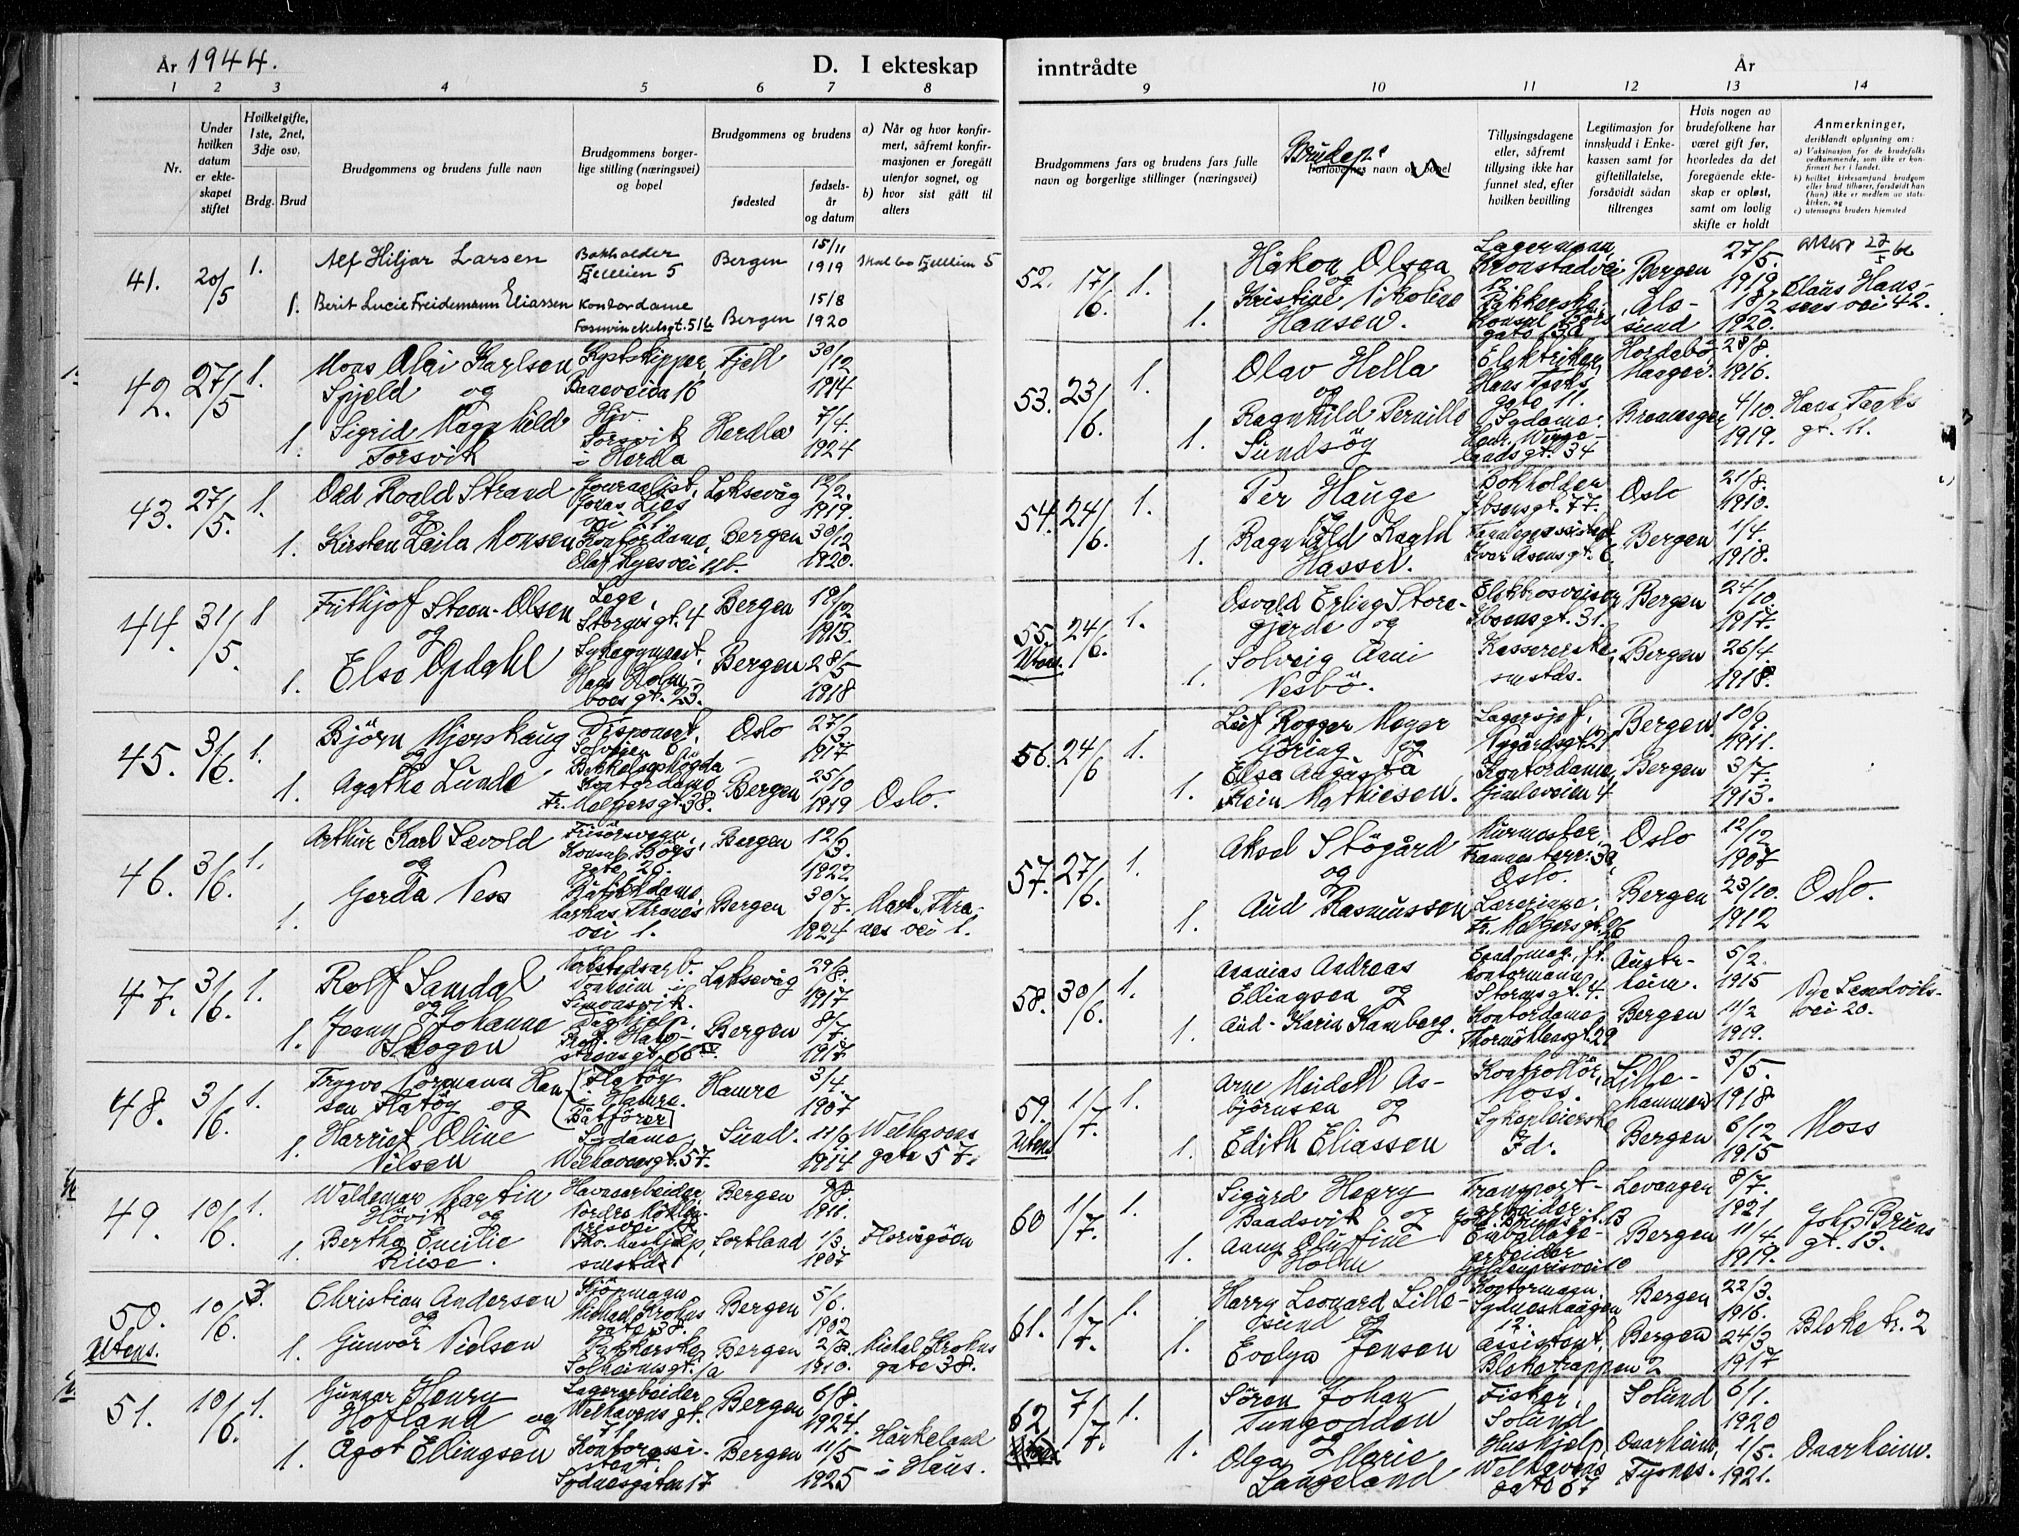 År 1944.
D. I ekteskap
inntrådte
År
1 2 3 4 5 6 7 8
9 10 11 12 13 14
Nr.
Under hvilken datum er ekteskapet stiftet
Hvilketgifte, 1ste, 2net, 3dje osv.
Brdg. Brud
Brudgommens og brudens fulle navn
Brudgommens borgerlige stilling (næringsvei) og bopel
Brudgommens og brudens
fødested
fødselsår og datum
a) Når og hvor konfirmert, såfremt konfirmasjonen er foregått utenfor sognet, og
b) hvor sist gått til alters
Brudgommens fars og brudens fars fulle navn og borgerlige stillinger (næringsvei)
Forlovernes navn og bopel
Tillysingsdagene eller, såfremt tillysing ikke har funnet sted, efter hvilken bevilling
Legitimasjon for innskudd i Enkekassen samt for giftetillatelse, forsåvidt sådan tiltrenges
Hvis nogen av brudefolkene har været gift før, hvorledes da det foregående ekteskap er opløst, samt om lovlig skifte er holdt
Anmerkninger,
deriblandt oplysning om:
a) Vaksinasjon for de brudefolks vedkommende, som ikke er konfirmert her i landet.
b) hvilket kirkesamfund brudgom eller brud tilhører, forsåvidt han (hun) ikke er medlem av statskirken, og
c) utensogns bruders hjemsted
41. 20/5 1. Alf Hiljar Larsen Bokholder Fjellien 5 Bergen 15/11 1919 Skal bo Fjellien 5
1. Berit Lucie Freidemann Eliassen Kontordame Bergen 15/8 1920
42. 27/5 1. Mons Olai Karlsen Kystskipper, Fjell 30/12 1914
Spjeld og Baneveien 16
1. Sigrid Magnhild Hjv. Herdla 7/4. 1924
Torsvik Torsvik i Herdla
43. 27/5. 1. Odd Roald Strand Journalist, Laksevåg 12/2. 1919.
og Jonas Lies vei
1. Kirsten Laila Monsen Kontordame, Bergen 30/12 1920.
Olaf Ryesvei
44. 31/5. 1 Frithjof Steen-Olsen Lege, Bergen 18/12 1913.
og Stormsgt. 4
1. Else Opdahl Bergen 28/5 1918
Hans Holmboesgt. 23.
45. 3/6. 1. Björn Mjerskaug Disponent, Oslo 27/3 1917
1. Agathe Lunde Kontordame Bergen 25/10 1919 Oslo.
Fr. Meltzersgt. 38.
46. 3/6. 1. Arthur Karl Sævold Frisörsvenn, Bergen 12/3. 1922.
og Konsul Börs gate 26.
1. Gerda Ness Butikkdame, Bergen 30/7. 1924 Mark. Thranes vei 1.
Markus Thranes vei 1.
47. 3/6. 1. Rolf Samdal Verkstedsarb. Laksevåg 29/8. 1917
og i Simonsvik.
1. Jenny Johanne Daghjelp, Bergen 8/7. 1917
Skogen
48. 3/6. 1. Trygve Normann Han- Flatöy Hamre 3/4. 1907
sen Flatöy og i Hamre. Båtförer
1. Harriet Oline Sydame, Sund. 11/9 1914 Welhavens gate 57.
Nilsen Welhavensgt. 57.
49. 10/6. 1. Waldemar Martin Havnearbeider Bergen 9/8. 1911.
Hövik og
1. Bertha Emilie Lortland 1/3. 1907 Florvågöen
Riise.
50. 10/6. 3. Christian Andersen Sjömann Bergen 5/6. 1902
Utens. og Michael Krohns gate 38.
1. Gunvor Nielsen Pakkerske Bergen 2/8. 1910. Michal Krohns gate 38.
Solheimsgt.
51. 10/6. 1. Gunnar Henry Lagerarbeider Bergen 6/8. 1924.
Hofland og Welhavens gt.
1. Ågot Ellingsen Kontorassistent Bergen 11/5 1925 Haukeland i Haus.
Sydnesgaten 17
52. 17/6. 1. Håkon Olsen Lagermann Bergen 27/5. 1919
og Kronstadvei 12
1. Kristine Nikoline Pakkerske Ålesund 18/2 1920. Claus Hanssens vei 42.
Hansen. Konsul Börs gate
53. 23/6. 1. Olav Hella Elektriker, Hordebö, Manger. 28/8. 1916.
og Hans Tanks gate 11.
1. Ragnhild Pernille Sydame. Bremanger 4/10. 1919. Hans Tanks gt. 11.
Sundsöy Henr. Wergelandsgt. 34
54. 24/6. 1. Per Hauge Bokholder Oslo 21/8. 1910.
og Ibsensgt. 77.
1. Ragnhild Ragld Bergen 1/4. 1918.
Hassel. Ivar Aasensgt. 6
55. 24/6. 1. Osvald Erling Store- Elektrosveiser Bergen 24/10. 1917.
Utens. gjerde og Ibsensgt. 31.
1. Solveig Aani Kassererske Bergen 26/4. 1918.
Nesbö. smstds.
56. 24/6 1. Leif Rogger Meyer Lagersjef, Bergen. 10/9. 1911.
Göring og Nygårdsgt. 21
1. Elsa Augusta Kontordame, Bergen 3/7. 1913.
Stein Mathiesen. Gimleveien 4
57. 27/6. 1. Aksel Stögård Murmester Oslo 12/12 1907
og Oslo.
1. Aud Rasmussen Lærerinne, Bergen 23/10. 1912 Oslo.
Fr. Meltzersgt. 26
58. 30/6. 1. Ananias Andreas kontormann Austrheim. 5/2. 1915
Ellingsen og Stormsgt. 4.
1. Aud-Karin Hamberg. Kontordame, Bergen 11/2 1919. Nye Sandviksvei 20.
Thormöhlensgt. 29
59. 1/7. 1. Arne Meidell As- Kontrollör, Lillehammer 3/5. 1918.
Utens björnsen og Moss.
1. Edith Eliassen Sykepleierske Bergen 6/12 1915 Moss
Id.
60 1/7. 1. Sigurd Henry Transportarbeider Levanger 8/7. 1921
Baadsvik og
1. Anny Olufine Emballagearbeider Bergen 11/4. 1919. Golf. Bruns gt. 13.
Holm
61. 1/7. 1. Harry Leonard Lille- Kontormann, Bergen 22/3. 1916.
ösund og Sydneshaugen 12.
1. Evelyn Jensen Assistent, Bergen 24/3 1917 Bleke tr. 2
Bleketrappen 2
62. 7/7. 1. Sören Johan Fisker, Solund 6/1. 1920
Tungodden og Solund
1. Olga Marie Hushjelp, Onarheim, Tysnes. 1/5. 1921. Onarheim.
Langeland Welhavens gate 67